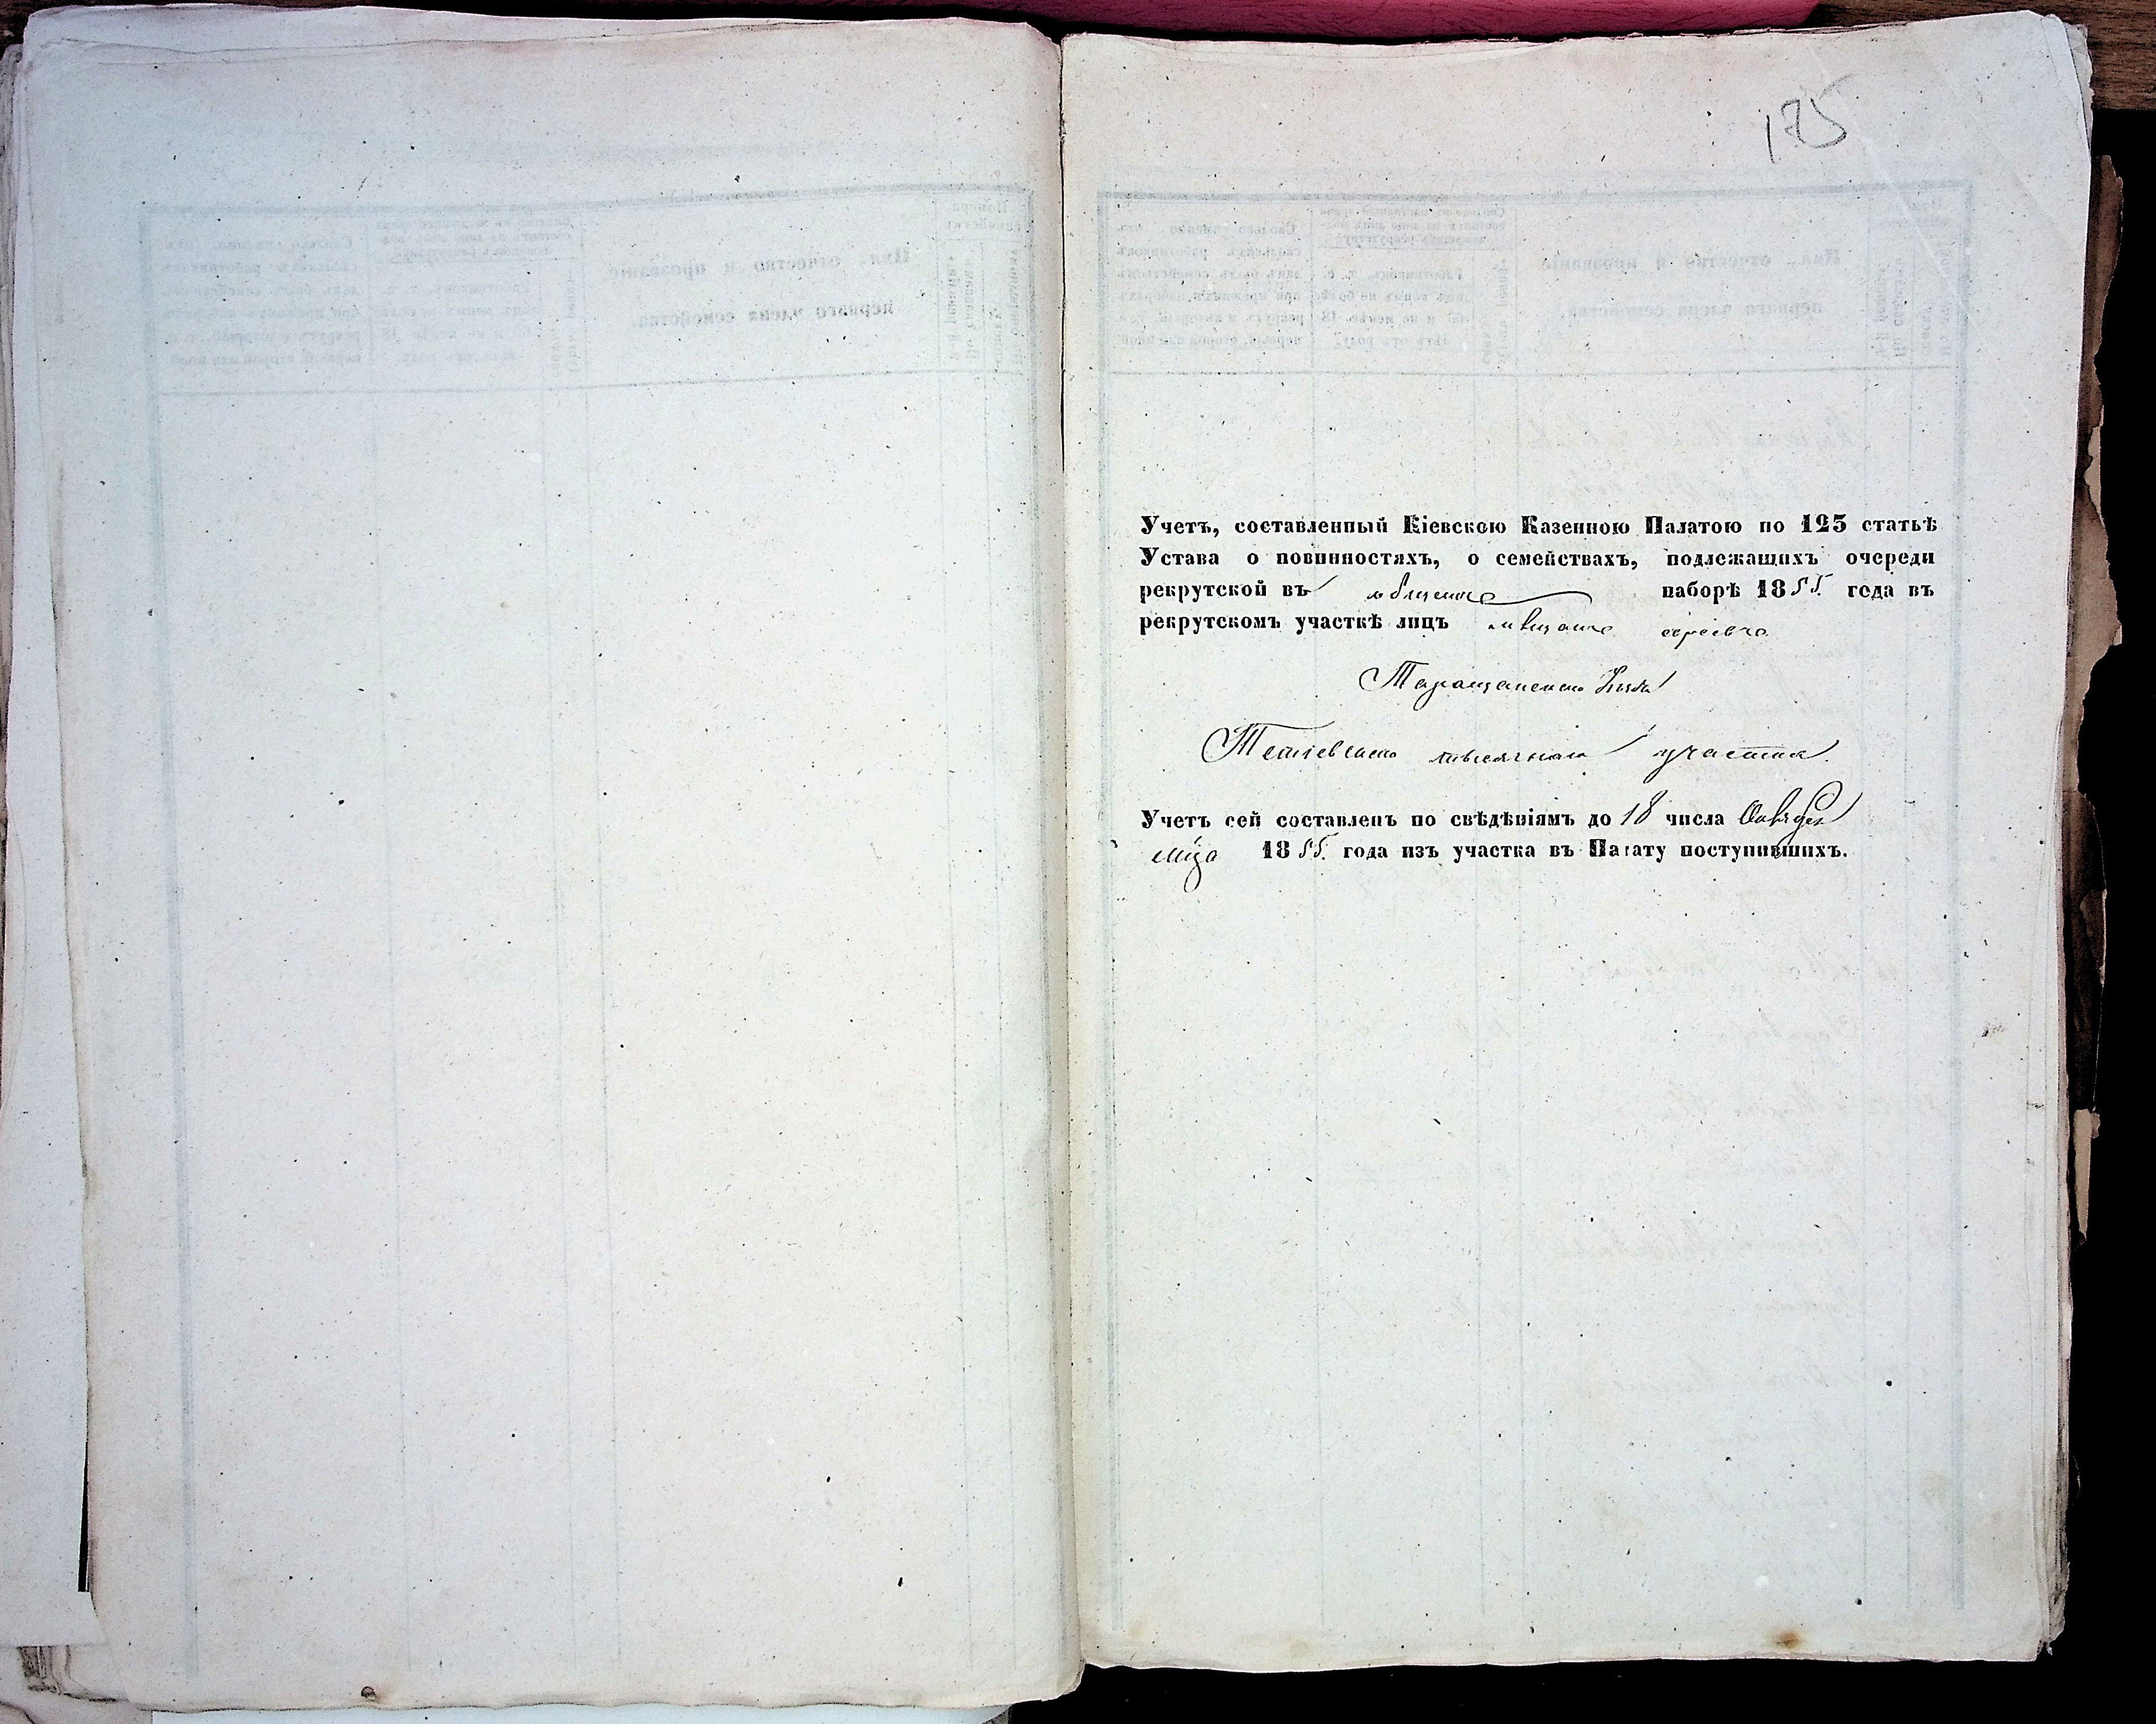 175
Учетъ, составленный Кіевскою Казенною Палатою по 125 статьѣ
Устава о повинностяхъ, о семействахъ, подлежащихъ очереди
рекрутской въ наборѣ 1855 года въ
рекрутскомъ участкѣ лицъ мѣщанъ евреевъ
Таращанскаго уѣзда
Тетіевскаго тысячнаго участка.
Учетъ сей составленъ по свѣдѣніямъ до 18 числа Октября
мца 1855 года изъ участка въ Палату поступившихъ.